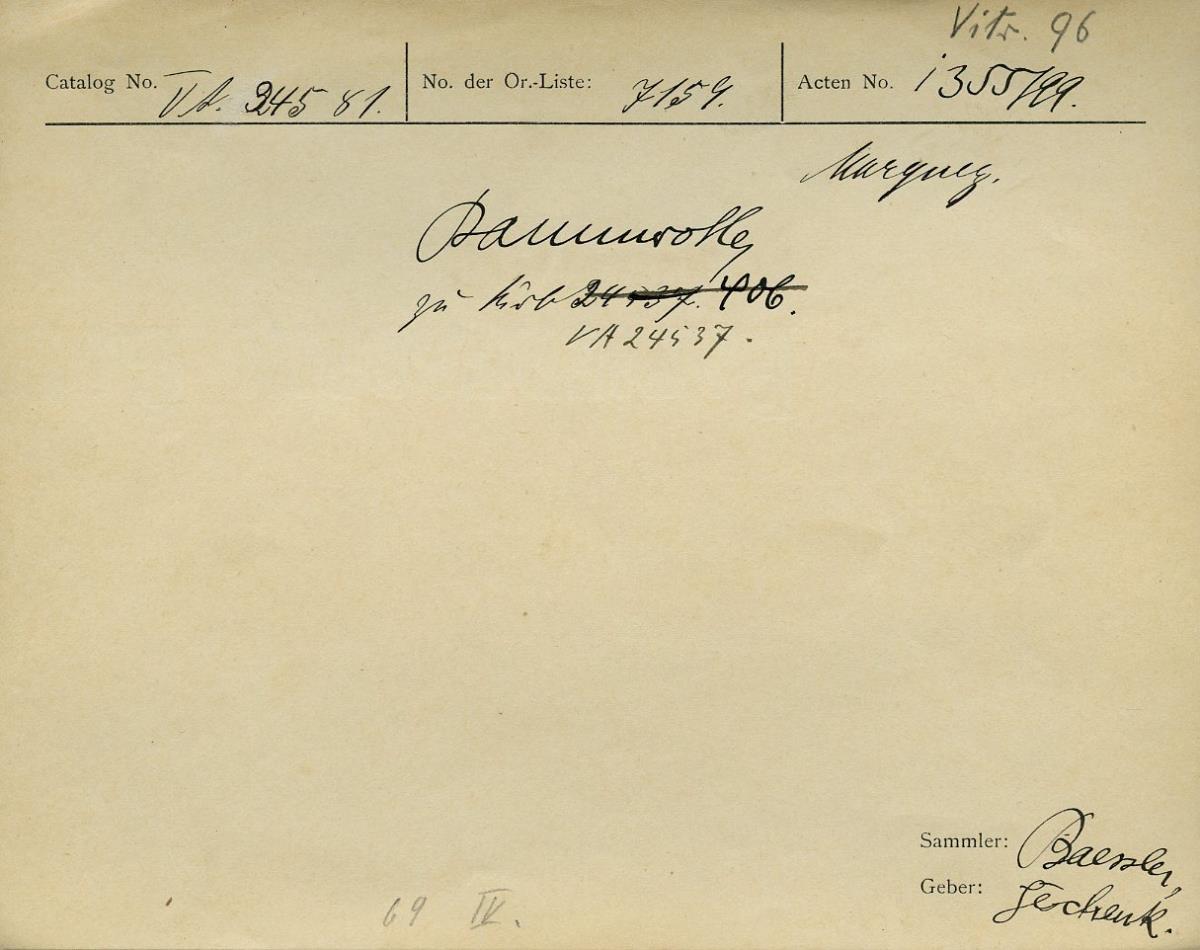 Vitr. 96
Catalog No. VA. 24581. No. der Or.-Liste: 7159. Acten No. 1355/99.
Marquez.
Baumwolle
zu Korb 24537. 406.
VA 24537.
Sammler: Baessler,
Geber: Geschenk.
69 IV.